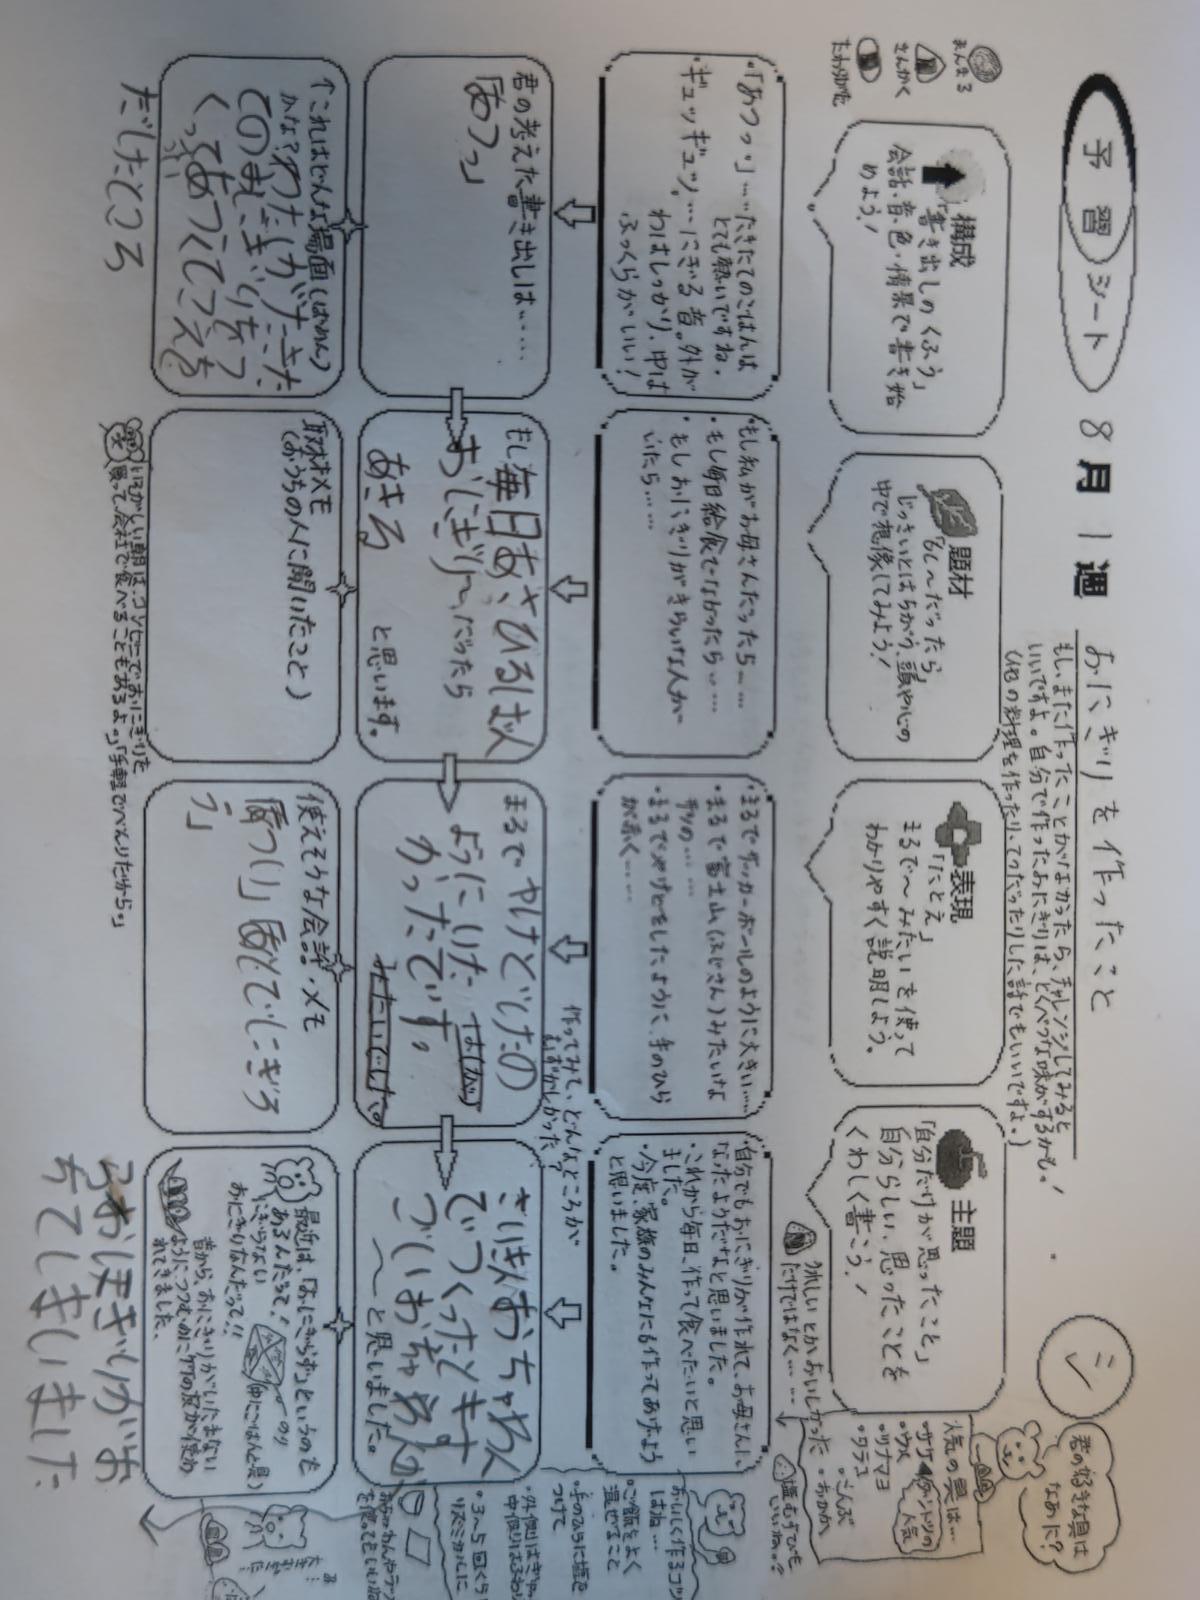 予習シート
8月1週
おにぎりを作ったこと
もし、まだ作ったことがなかったら、チャレンジしてみると
いいですよ。自分で作ったおにぎりは、とくべつな味がするかも!
(他の料理を作ったり、てつだったりした話でもいいですよ。)
シ
君の好きな具は
なあに?
まんまる
さんかく
たわら形
構成
「書き出しのくふう」
会話・音・色・情景で書き始
めよう!
題材
「もし〜だったら」
じっさいとはちがう、頭や心の
中で想像してみよう!
表現
「たとえ」
まるで〜みたいを使って
わかりやすく説明しよう。
主題
「自分だけが思ったこと」
自分らしい、思ったことを
くわしく書こう!
うれしいとかおいしかった
だけではなく……
人気の具は…
・サケ◀ダントツの人気
・ウメ
・ツナマヨ
・タラコ
・こんぶ
・おかか
塩むすびも
いいね。?
・「あつっ」……たきたてのごはんは
とても熱いですね。
・ギュッギュッ。…にぎる音。外が
わはしっかり、中は
ふっくらがいい!
・もし私がお母さんだったら……
・もし毎日給食でなかったら……
・もしおにぎりがきらいな人が
いたら……
・まるでサッカーボールのように大きい……
・まるで富士山(ふじさん)みたいな
形の……
・まるでやけどをしたように、手のひら
が赤く……
・自分でもおにぎりが作れて、お母さんに
なったようだなと思いました。
・これから毎日、作って食べたいと思い
ました。
・今度、家族のみんなにも作ってあげよう
と思いました。
おいしく作るコツ
はね…
・ご飯をよく
混ぜること
・手のひらに塩を
つけて
君の考えた書き出しは……
「あつっ」
もし毎日あさひるばん
おにぎり〜だったら
あきる
と思います。
まるでやけどしたの
ようにいけた
かったです。
みたいでした。
作ってみて、どんなところが
むずかしかった?
さいきんおちゃわん
でつくったとき
〜と思いました。
・3〜5回くらい
リズミカルに
これはどんな場面(ばめん)
かな?わたしがたきた
てのおにぎりをつ
くってあつくてこえを
だしたところ
取材メモ
(おうちの人に聞いたこと)
いそがしい朝は、コンビニでおにぎりを
買って、会社で食べることもあるよ。」「手軽でべんりだから。」
使えそうな会話・メモ
最近は、「おにぎらず」というのも
あるんだって!
にぎらない
おにぎりなんだって!!
のり
(中にごはんと具)
昔から、おにぎりがいたまない
ようにつつむのに竹の皮が使わ
れてきました。
ちてしまいました